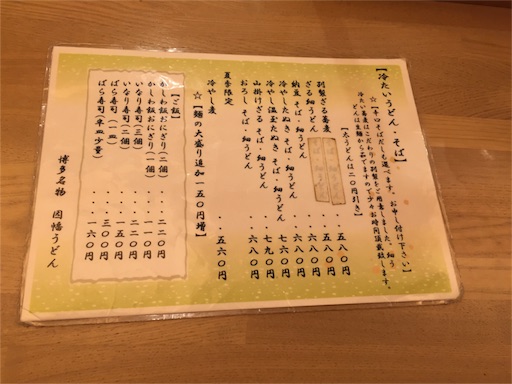 【冷たいうどん・そば】
☆【辛口そばだしも選べます。お申し付け下さい】
冷たい蕎麦はこだわりの特製をご用意しました。細う
どんは生麺から茹でますので少々お時間頂戴致します。
【太うどんは二〇円引き】
特製ざる蕎麦 ・・五八〇円
ざる細うどん ・・五八〇円
納豆 そば・細うどん ・・六八〇円
冷やしたぬき そば・細うどん ・・六八〇円
冷やし温玉たぬき そば・細うどん ・七六〇円
山掛けざる そば・細うどん ・・七九〇円
おろし そば・細うどん ・・六八〇円
夏季限定
冷やし麦 ・・五六〇円
☆【麺の大盛り追加一五〇円増】
【ご飯】
かしわ飯おにぎり(二個) ・・二二〇円
かしわ飯おにぎり(一個) ・・一一〇円
いなり寿司(三個) ・・二二〇円
いなり寿司(二個) ・・一五〇円
ばら寿司(一皿) ・・三〇〇円
ばら寿司(半皿少量) ・・一六〇円
博多名物 因幡うどん